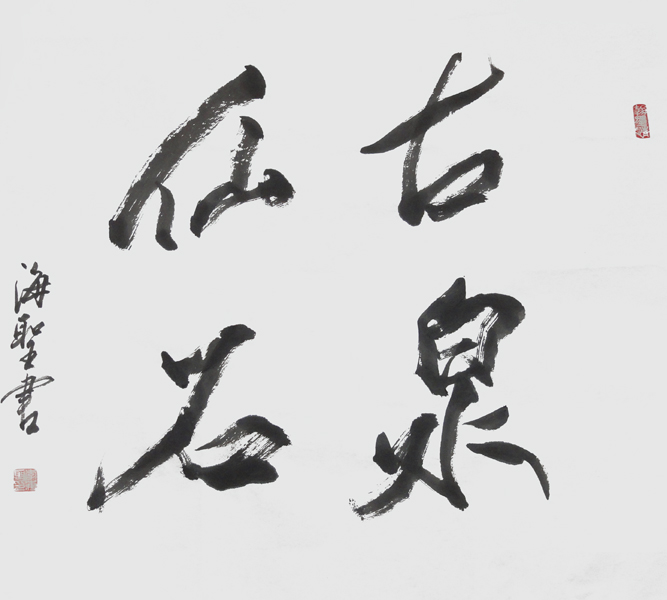 古泉
仙石
海聖書